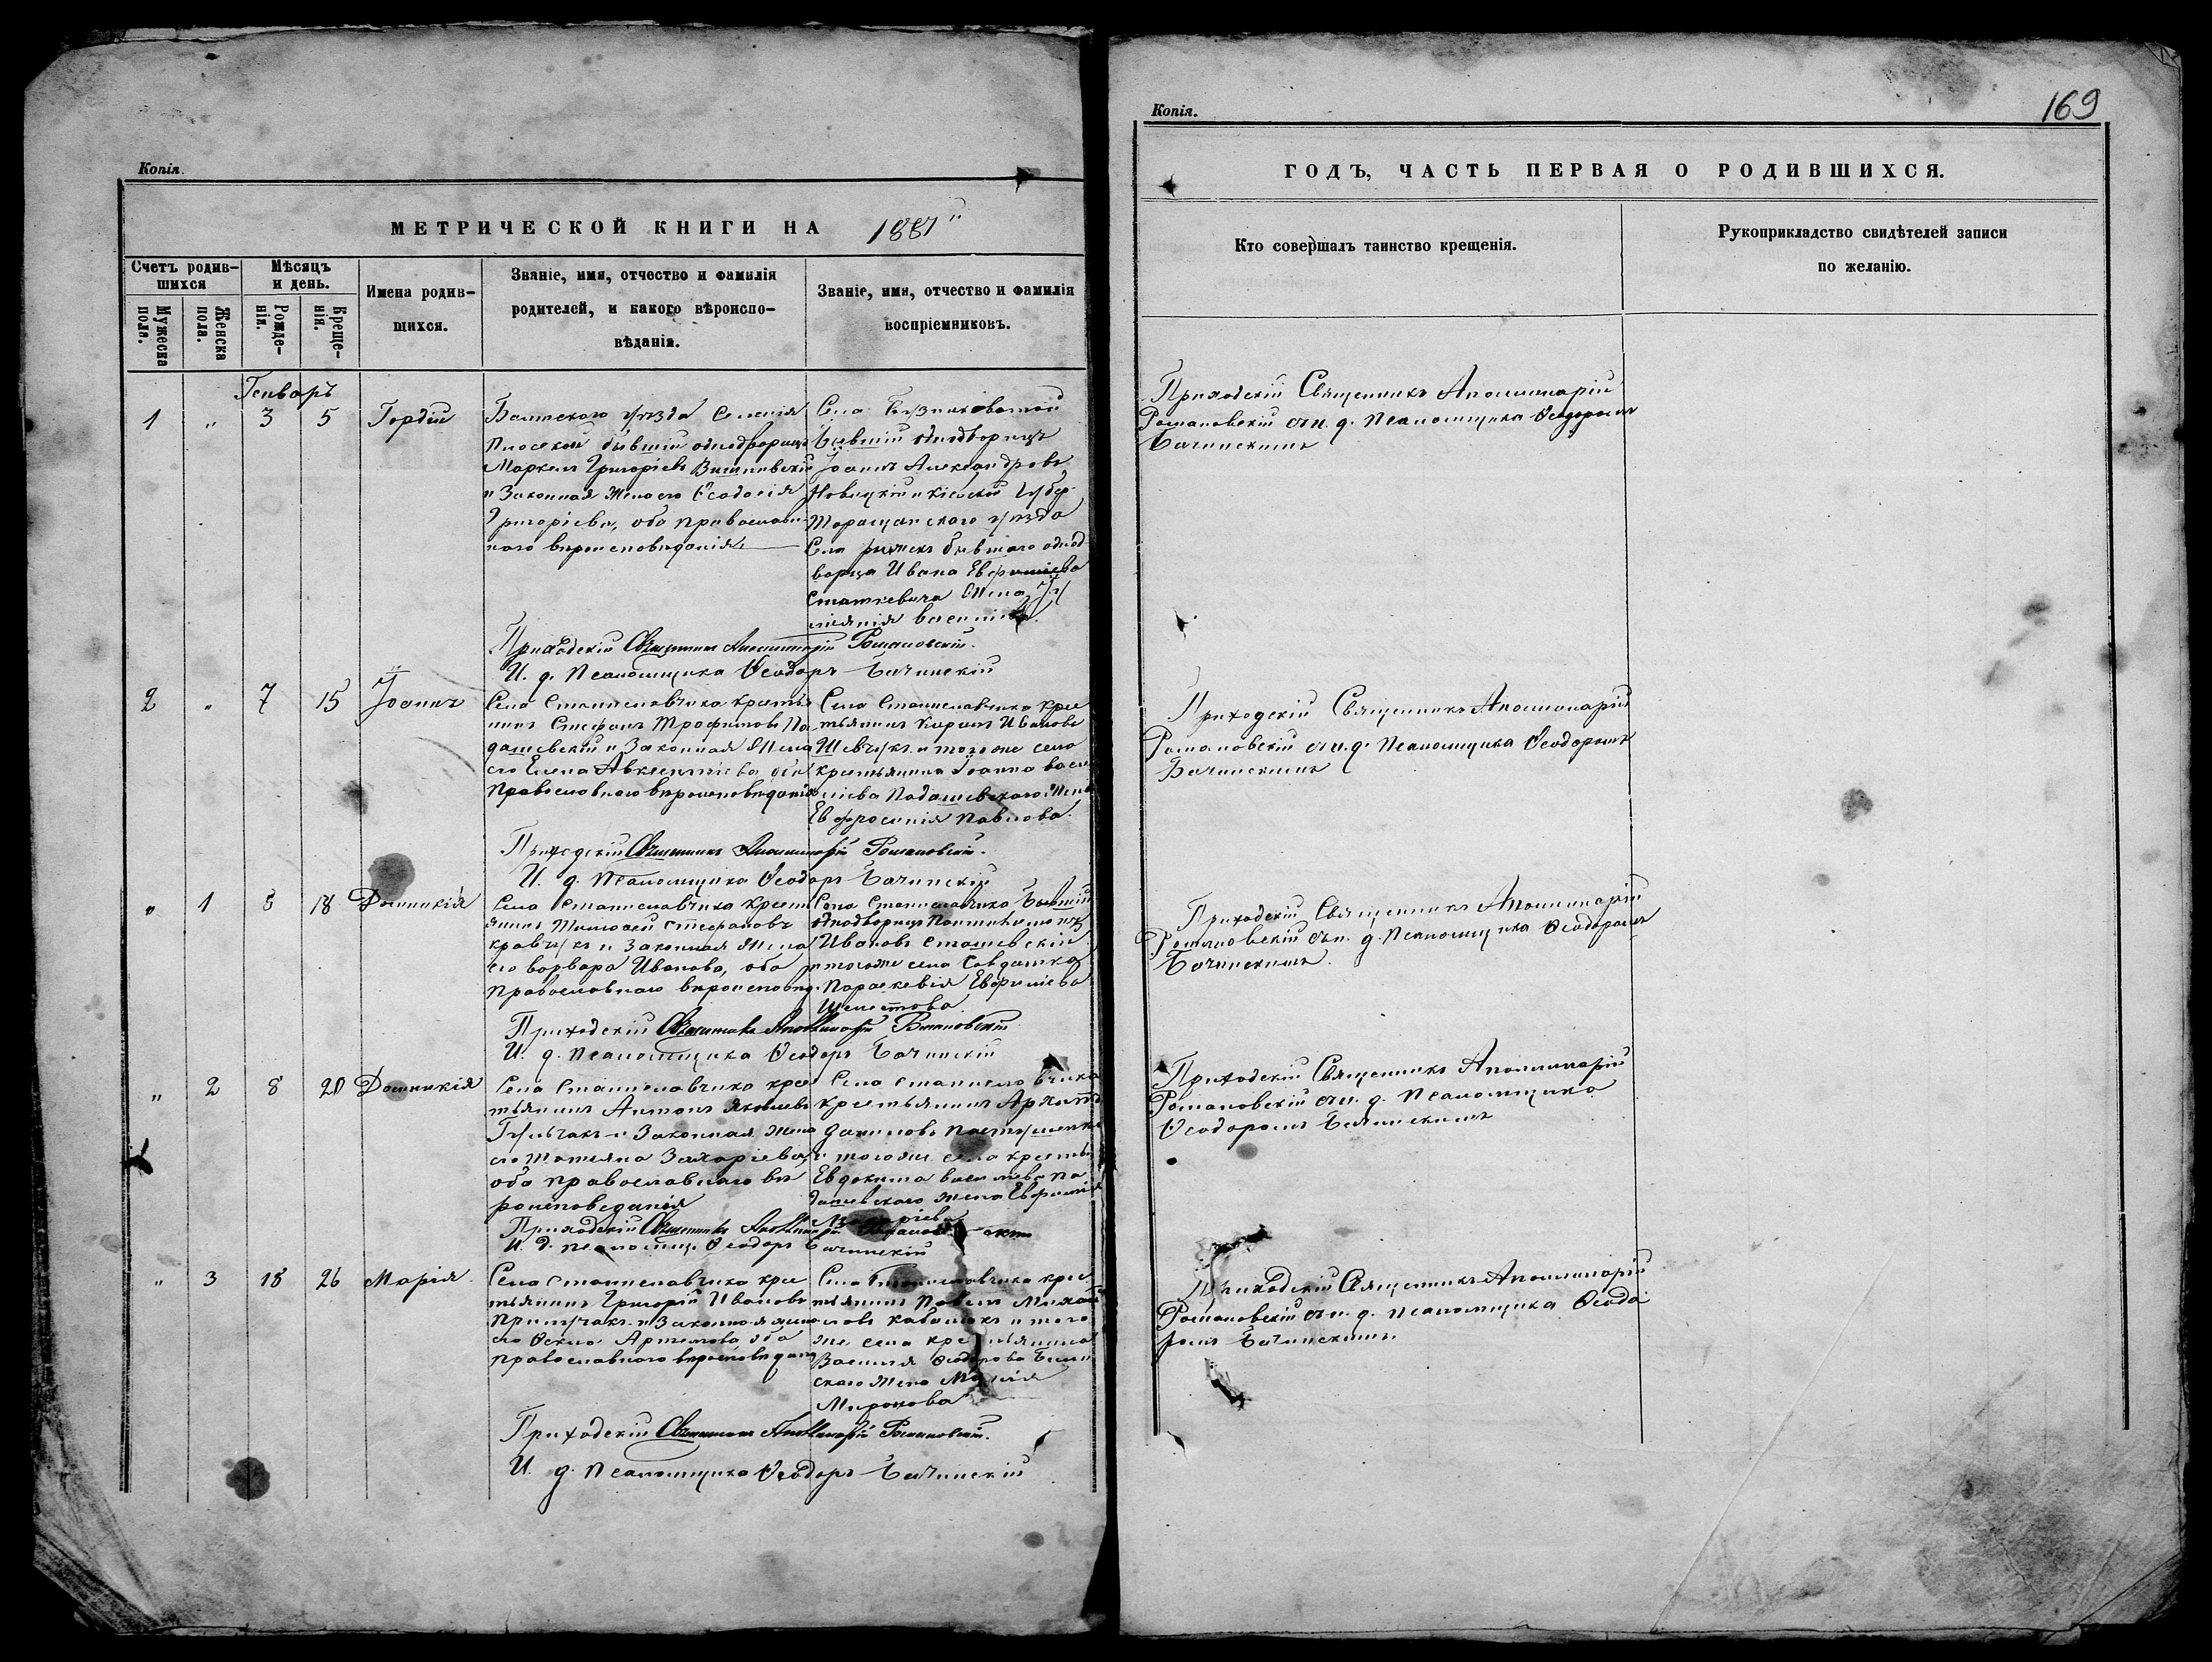 Копія.
МЕТРИЧЕСКОЙ КНИГИ НА 1881
Счетъ родив-
шихся
Мужеска
пола.
Женска
пола.
Мѣсяцъ
и день.
Рожде-
нія.
Креще-
нія.
Имена родив-
шихся.
Званіе, имя, отчество и фамилія
родителей, и какого вѣроиспо-
вѣданія.
Званіе, имя, отчество и фамилія
воспріемниковъ.
Генваръ
1 " 3 5 Гордій
Балтскаго уѣзда Селенія
бывшій однодворецъ
Маркелъ Григоріевъ
и Законная Жена его Ѳеодосія
Григоріева, оба православ-
наго вѣроисповѣданія
Села
Бывшій однодворецъ
Іоаннъ Александровъ
Новицкій и Кіевской Губер.
Таращанского уѣзда
Села бывшаго однод
ворца Ивана
Жена
Приходскій Священникъ Аполлинарій Романовскій.
И. д. Псаломщика Ѳеодоръ Бачинскій
2 " 7 15 Іоаннъ
Села Станиславчика крестья
нинъ Стефанъ Трофимовъ По
дашевскій и Законная Жена
его Елена Авксентіева оба
Православного вѣроисповѣданія
Села Станиславчика крес
тьянинъ Кирилъ Ивановъ
Шевчукъ и тогоже села
крестьянина Іоанна Васи
ліева Подашевскаго Жена
Евфросинія Павлова.
Приходскій Священникъ Аполлинарій Романовскій.
И. д. Псаломщика Ѳеодоръ Бачинскій
" 1 18 Домникія
Села Станиславчика крест
янинъ Тимофей Стефановъ
Кравчукъ и Законная Жена
его Варвара Иванова, оба
Православнаго вѣроисповѣд.
Села Станиславчика Бывшій
однодворецъ
Ивановъ Сташевскій
и тогоже села Солдатка
Параскевія Евфиміева
Приходскій Священникъ Аполлинарій Романовскій
И. д. Псаломщика Ѳеодоръ Бачинскій
" 2 8 20 Домникія
Села Станиславчика крес
тьянинъ Антонъ Яковлевъ
Гульчакъ и Законная Жена
его Татьяна Захаріева,
оба православнаго вѣ
роисповеданія
Села Станиславчика
крестьянинъ Архипъ
Даниловъ
и тогоже села крестья
Евдокима Василіева По
дашевскаго жена Евфимія
Приходскій Священникъ Аполлинарій
И. д. Псаломщ. Ѳеодоръ Бачинскій
" 3 18 26 Марія
Села Станиславчика крес
тьянинъ Григорій Ивановъ
и Законная жена
его Артемова оба
православного вѣроисповѣдан
Села Станиславчика крес
тьянинъ Павелъ Михай
ловъ и того
же села крестьянина
Василія Ѳеодорова
скаго Жена Марія
Миронова
Приходскій Священникъ Аполлинарій Романовскій.
И. д. Псаломщика Ѳеодоръ Бачинскій
Копія.
169
ГОДЪ, ЧАСТЬ ПЕРВАЯ О РОДИВШИХСЯ.
Кто совершалъ таинство крещенія.
Рукоприкладство свидѣтелей записи
по желанію.
Приходскій Священникъ Аполлинарій
Романовскій съ и. д. Псаломщика Ѳеодоромъ
Бачинскимъ
Приходскій Священникъ Аполлинарій
Романовскій съ и. д. Псаломщика Ѳеодоромъ
Бачинскимъ
Приходскій Священникъ Аполлинарій
Романовскій съ и. д. Псаломщика Ѳеодоромъ
Бачинскимъ.
Приходскій Священникъ Аполлинарій
Романовскій съ и. д. Псаломщика
Ѳеодоромъ Бачинскимъ
Приходскій Священникъ Аполлинарій
Романовскій съ и. д. Псаломщика Ѳеодо
ромъ Бачинскимъ.